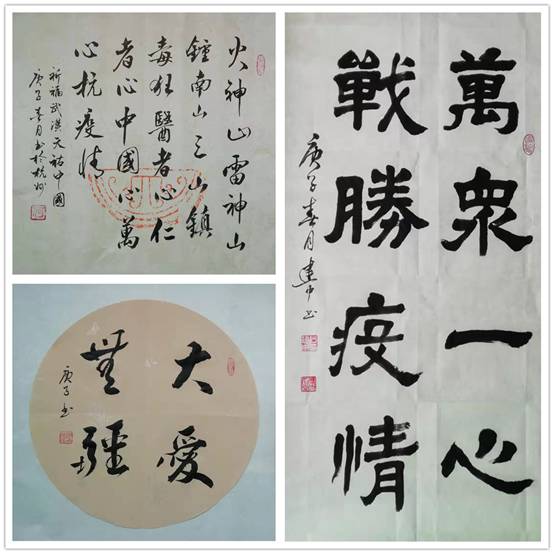 火神山雷神山
鍾南山三山鎮
毒狂醫者心仁
者心中國心萬
心抗疫情
祈福武漢天祐中國
庚子春月書於杭州
大愛
無疆
庚子書
萬衆一心
戰勝疫情
庚子春月建中書